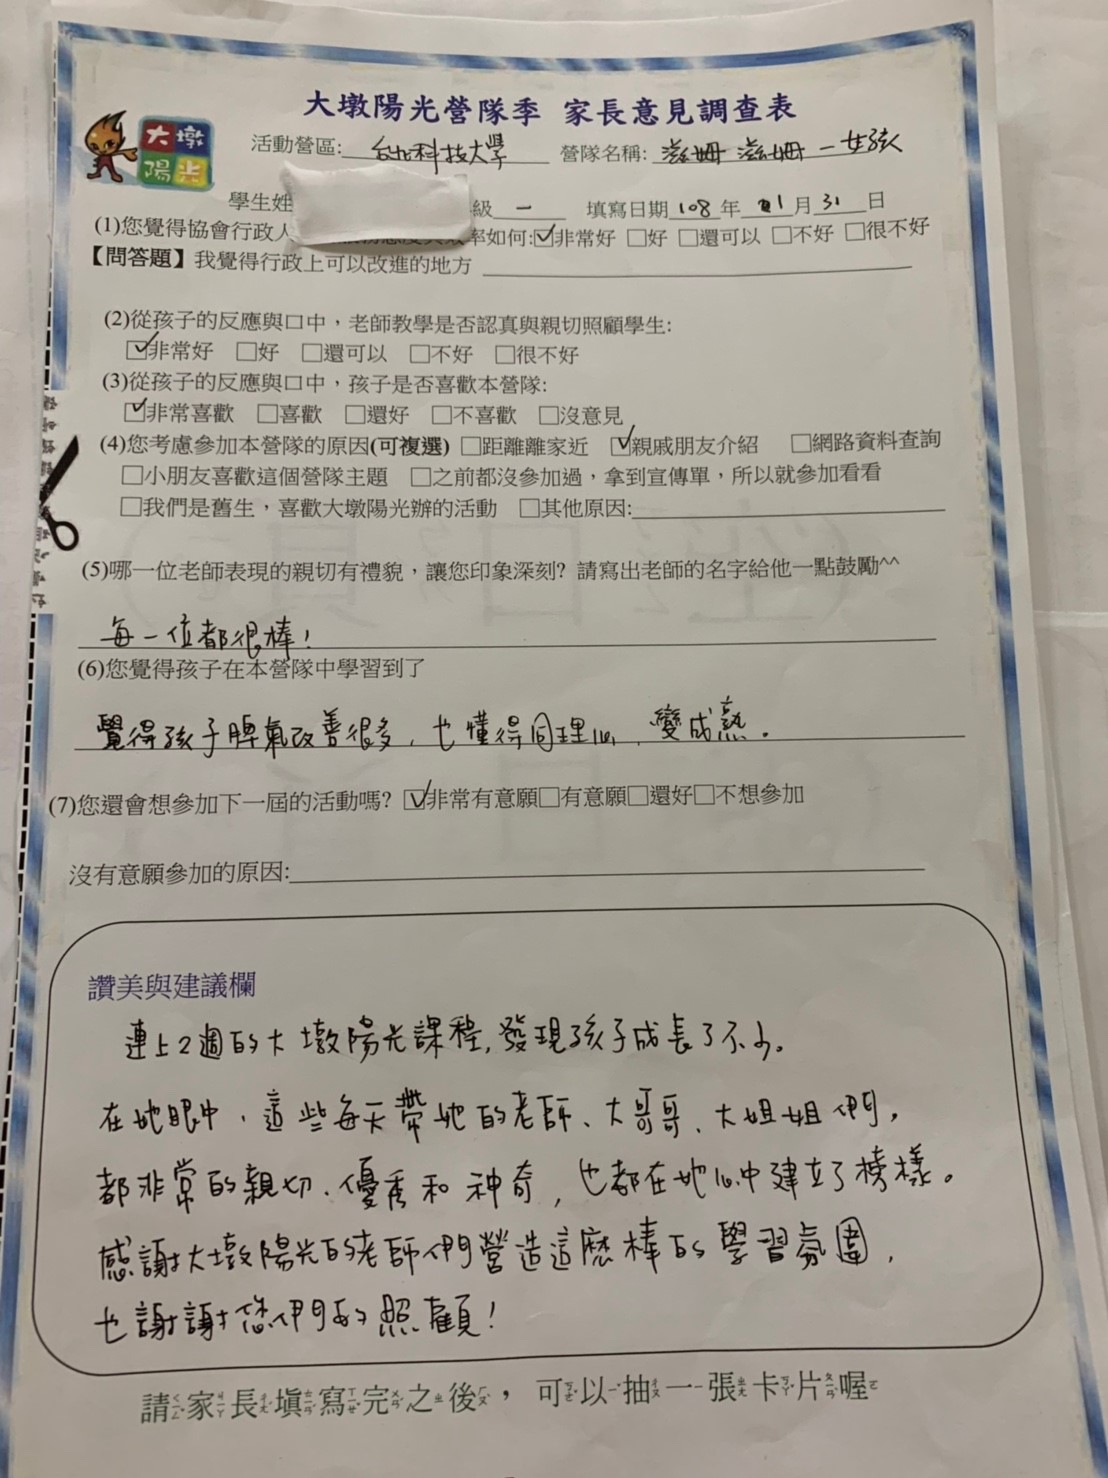 大墩陽光營隊季 家長意見調查表
大墩
陽光
活動營區: 台北科技大學 營隊名稱: 滋姆滋姆一女孩
學生姓 級 一 填寫日期 108 年 1 月 31 日
(1)您覺得協會行政人 率如何:☑非常好 □好 □還可以 □不好 □很不好
【問答題】我覺得行政上可以改進的地方
(2)從孩子的反應與口中，老師教學是否認真與親切照顧學生:
☑非常好 □好 □還可以 □不好 □很不好
(3)從孩子的反應與口中，孩子是否喜歡本營隊:
☑非常喜歡 □喜歡 □還好 □不喜歡 □沒意見
(4)您考慮參加本營隊的原因(可複選) □距離離家近 ☑親戚朋友介紹 □網路資料查詢
□小朋友喜歡這個營隊主題 □之前都沒參加過，拿到宣傳單，所以就參加看看
□我們是舊生，喜歡大墩陽光辦的活動 □其他原因:
(5)哪一位老師表現的親切有禮貌，讓您印象深刻? 請寫出老師的名字給他一點鼓勵^^
每一位都很棒!
(6)您覺得孩子在本營隊中學習到了
覺得孩子脾氣改善很多，也懂得同理心，變成熟。
(7)您還會想參加下一屆的活動嗎? ☑非常有意願□有意願□還好□不想參加
沒有意願參加的原因:
讚美與建議欄
連上2週的大墩陽光課程，發現孩子成長了不少。
在她眼中，這些每天帶她的老師、大哥哥、大姐姐們，
都非常的親切、優秀和神奇，也都在她心中建立了榜樣。
感謝大墩陽光的老師們營造這麼棒的學習氛圍，
也謝謝您們的照顧!
請家長填寫完之後，可以抽一張卡片喔